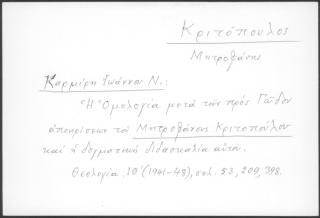 Κριτόπουλος
Μητροφάνης
Καρμίρη Ἰωάννου Ν.:
Ἡ Ὁμολογία μετά τῶν πρός Γώδον
ἀποκρίσεων τοῦ Μητροφάνους Κριτοπούλου
καί ἡ δογματική διδασκαλία αὐτοῦ.
Θεολογία, ΙΘ' (1941-48), σελ. 53, 209, 398.